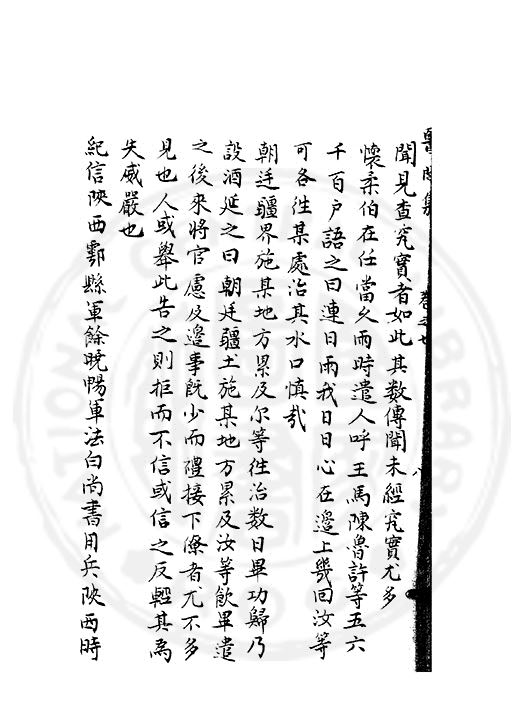 聞見查究實者如此其數傳聞未經究實尤多
懷柔伯在任當久雨時遣人呼王馬陳魯許等五六
千百户語之曰連日雨我日日心在邉上幾囘汝等
可各徃某處治其水口慎㦲
朝廷疆界施某地方累及尔等徃治數日畢功歸乃
設酒延之曰朝廷疆土施某地方累及汝等飲畢遣
之後來將官慮及邉事旣少而禮接下僚者尤不多
見也人或舉此告之則拒而不信或信之反輕其爲
失威嚴也
紀信陜西鄠縣軍餘曉暢軍法白尚書用兵陜西時